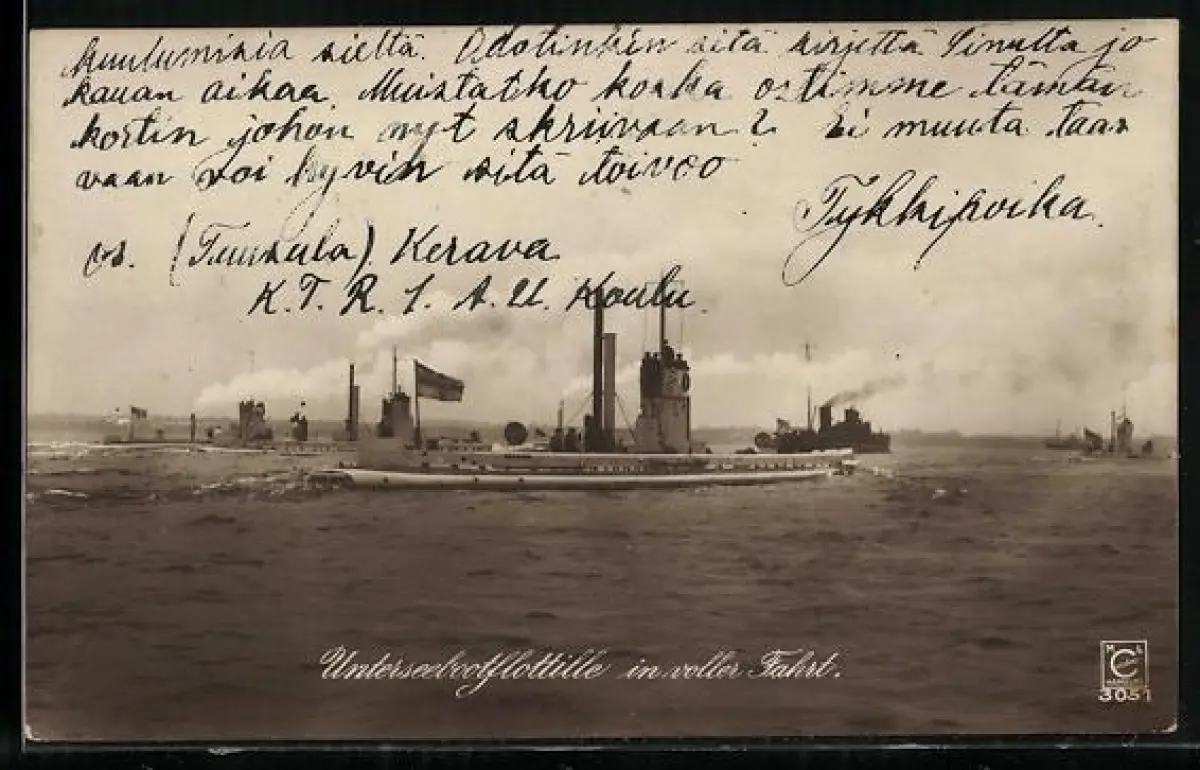 kuulumisia sieltä. Odotinkin sitä kirjettä Sinulta jo
kauan aikaa. Muistatko koska ostimme tämän
kortin johon nyt skriivaan? Ei muuta taas
vaan voi hyvin sitä toivoo
Tykkipoika.
os. (Tuusula) Kerava
K.T.R. 1. A.U. Koulu.
Unterseebootflottille in voller Fahrt.
3051